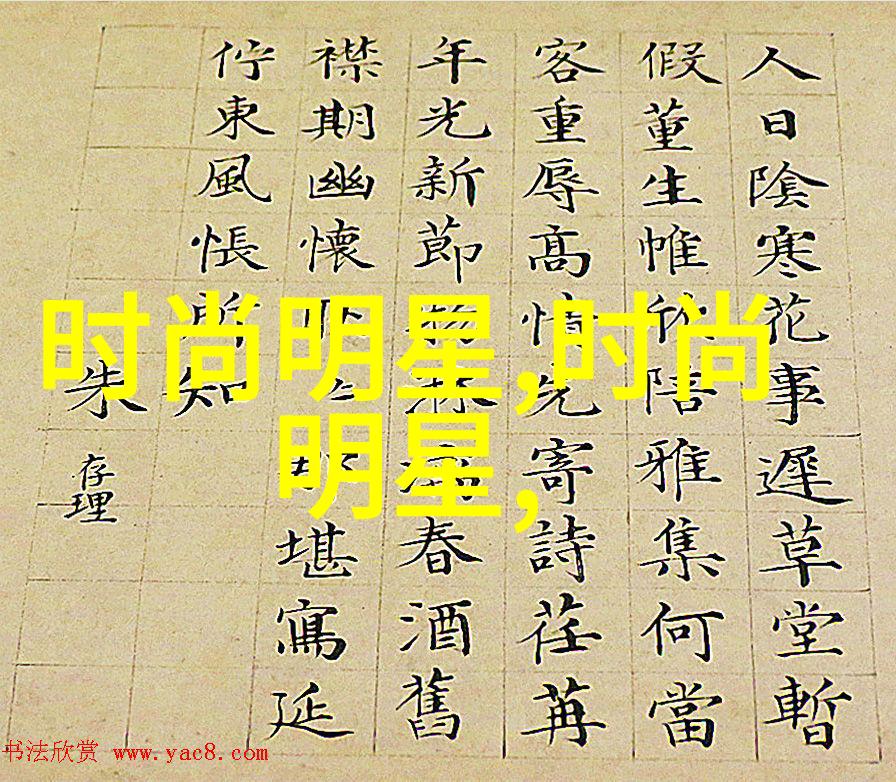 人日陰寒花事遲草堂暫
假董生帷欣陪雅集何當
客重辱高情先寄詩荏苒
年光新節物淋漓春酒舊
襟期幽懷堪寫延
佇東風悵所知
朱存理
时尚明星,时尚
明星,
书法欣赏 www.yac8.com